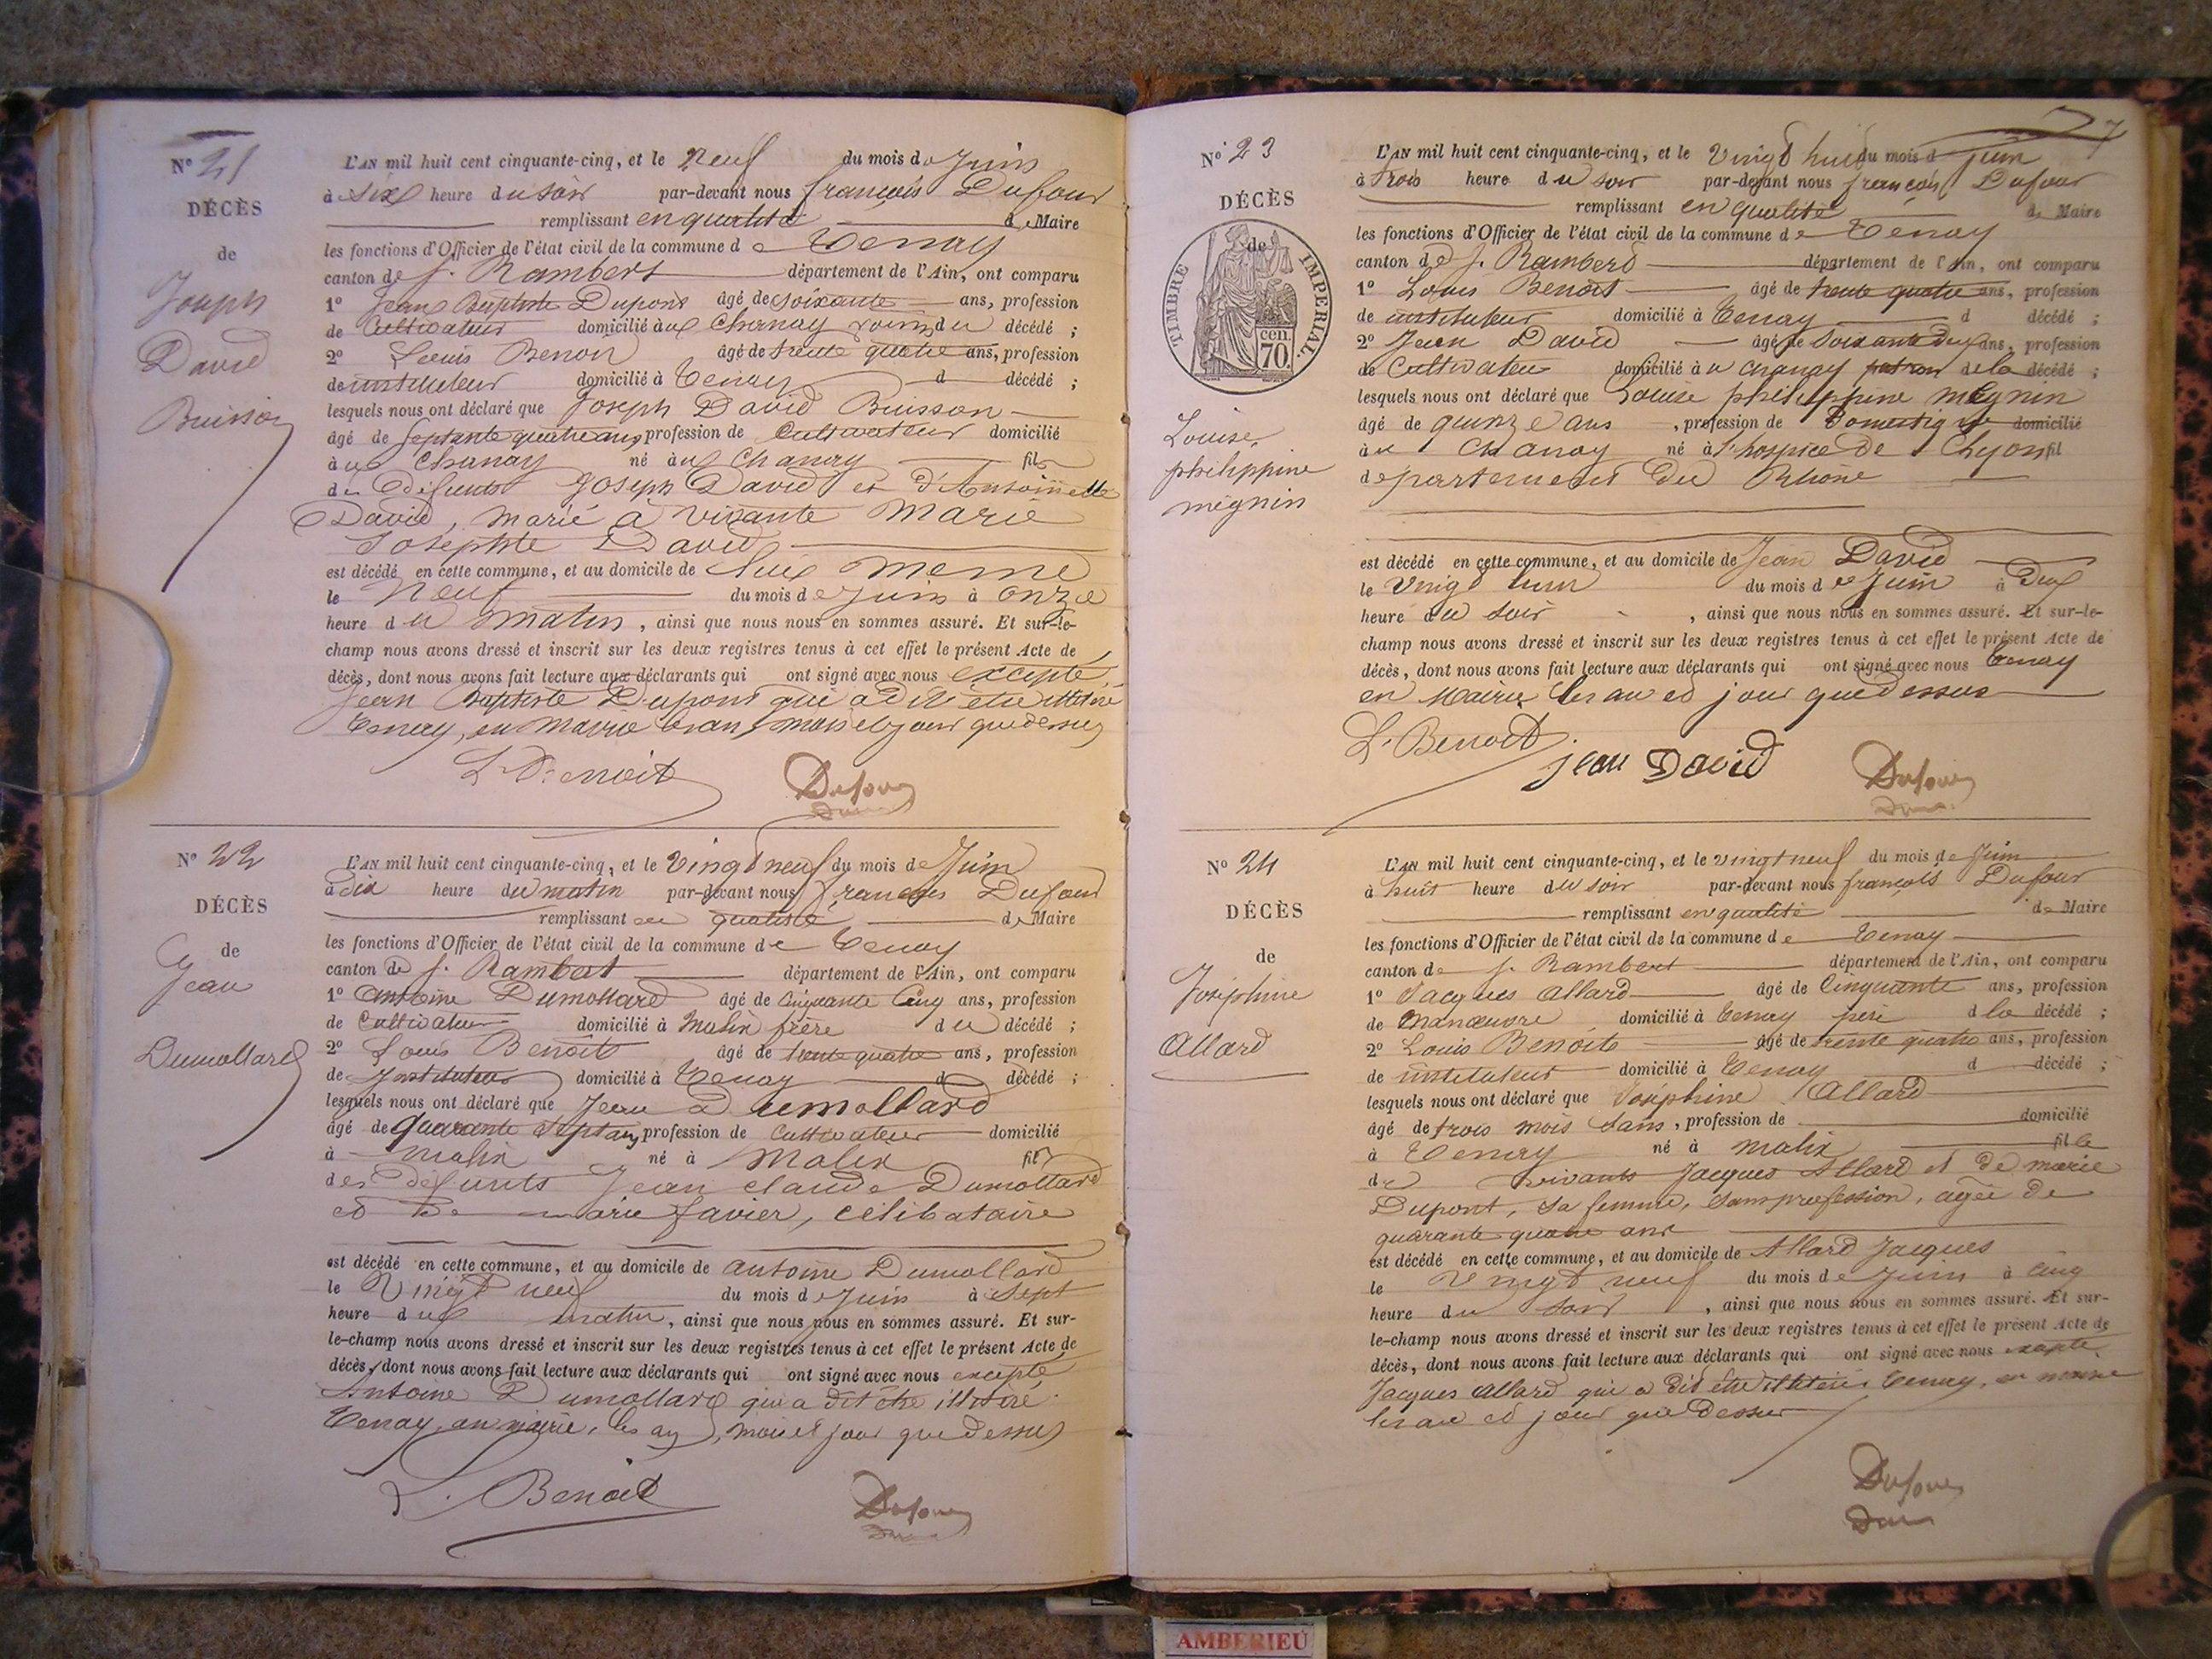 Nº 21
DÉCÈS
de
Joseph
David
Buisson
L'AN mil huit cent cinquante-cinq, et le Neuf du mois de Juin
à six heure du soir par-devant nous françois Dufour
remplissant en qualité de Maire
les fonctions d'Officier de l'état civil de la commune de Tenay
canton de S. Rambert département de l'Ain, ont comparu
1º Jean Baptiste Dupont âgé de soixante ans, profession
de Cultivateur domicilié au Chanay voisin du décédé ;
2º Louis Benoit âgé de trente quatre ans, profession
de instituteur domicilié à Tenay d décédé ;
lesquels nous ont déclaré que Joseph David Buisson
âgé de septante quatre ans, profession de Cultivateur domicilié
au Chanay né au Chanay fils
de défunts Joseph David et d'Antoinette
David, marié à vivante Marie
Josephte David
est décédé en cette commune, et au domicile de lui meme
le Neuf du mois de Juin à onze
heure du matin, ainsi que nous nous en sommes assuré. Et sur-le-
champ nous avons dressé et inscrit sur les deux registres tenus à cet effet le présent Acte de
décès, dont nous avons fait lecture aux déclarants qui ont signé avec nous excepté
Jean Baptiste Dupont qui a dit être illitéré
Tenay, en mairie les an, mois et jour que dessus
L. Benoit Dufour
Nº 22
DÉCÈS
de
Jean
Dumollard
L'AN mil huit cent cinquante-cinq, et le Vingt neuf du mois de Juin
à dix heure du matin par-devant nous françois Dufour
remplissant en qualité de Maire
les fonctions d'Officier de l'état civil de la commune de Tenay
canton de S. Rambert département de l'Ain, ont comparu
1º Antoine Dumollard âgé de Cinquante Cinq ans, profession
de Cultivateur domicilié à Malix frère du décédé ;
2º Louis Benoit âgé de trente quatre ans, profession
de Instituteur domicilié à Tenay d décédé ;
lesquels nous ont déclaré que Jean Dumollard
âgé de Quarante Sept ans, profession de Cultivateur domicilié
à Malix né à Malix fils
des défunts Jean Claude Dumollard
et de marie favier, célibataire
est décédé en cette commune, et au domicile de Antoine Dumollard
le Vingt neuf du mois de Juin à Sept
heure du matin, ainsi que nous nous en sommes assuré. Et sur-
le-champ nous avons dressé et inscrit sur les deux registres tenus à cet effet le présent Acte de
décès, dont nous avons fait lecture aux déclarants qui ont signé avec nous excepté
Antoine Dumollard qui a dit être illitéré
Tenay, en mairie, les an, mois et jour que dessus
L. Benoit Dufour
7
Nº 23
DÉCÈS
de
TIMBRE IMPERIAL.
70. cen
Louise
philippine
mégnin
L'AN mil huit cent cinquante-cinq, et le Vingt huit du mois d juin
à trois heure du soir par-devant nous françois Dufour
remplissant en qualité de Maire
les fonctions d'Officier de l'état civil de la commune de Tenay
canton de S. Rambert département de l'Ain, ont comparu
1º Louis Benoit âgé de trente quatre ans, profession
de instituteur domicilié à Tenay d décédé ;
2º Jean David âgé de soixante deux ans, profession
de Cultivateur domicilié au Chanay patron de la décédé ;
lesquels nous ont déclaré que Louise philippine mégnin
âgé de quinze ans, profession de Domestique domicilié
au Chanay né à l'hospice de Lyon fil
departement du Rhône
est décédé en cette commune, et au domicile de Jean David
le Vingt huit du mois de Juin à Deux
heure du soir, ainsi que nous nous en sommes assuré. Et sur-le-
champ nous avons dressé et inscrit sur les deux registres tenus à cet effet le présent Acte de
décès, dont nous avons fait lecture aux déclarants qui ont signé avec nous Tenay
en Mairie les an et jour que dessus
L. Benoit Jean David Dufour
Nº 24
DÉCÈS
de
Joséphine
Allard
L'AN mil huit cent cinquante-cinq, et le vingt neuf du mois de Juin
à huit heure du soir par-devant nous françois Dufour
remplissant en qualité de Maire
les fonctions d'Officier de l'état civil de la commune de Tenay
canton de S. Rambert département de l'Ain, ont comparu
1º Jacques Allard âgé de Cinquante ans, profession
de Manœuvre domicilié à Tenay père d la décédé ;
2º Louis Benoit âgé de trente quatre ans, profession
de instituteur domicilié à Tenay d décédé ;
lesquels nous ont déclaré que Joséphine Allard
âgé de trois mois sans, profession de domicilié
à Tenay né à Malix fille
de vivants Jacques Allard et de marie
Dupont, sa femme, sans profession, agée de
quarante quatre ans
est décédé en cette commune, et au domicile de Allard Jacques
le Vingt neuf du mois de Juin à Cinq
heure du soir, ainsi que nous nous en sommes assuré. Et sur-
le-champ nous avons dressé et inscrit sur les deux registres tenus à cet effet le présent Acte de
décès, dont nous avons fait lecture aux déclarants qui ont signé avec nous excepté
Jacques Allard qui a dit être illitéré. Tenay, en mairie
les an et jour que dessus
Dufour
AMBERIEU